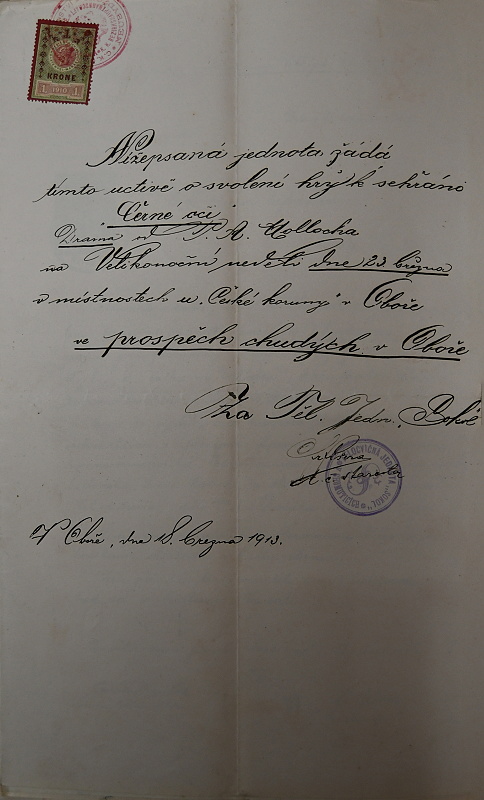 KRONE
1 1910 1
Nížepsaná jednota žádá
tímto uctivě o svolení hry k sehrání
"Černé oči"
Drama od P. A. Mollocha
na Velikonoční neděli dne 23 března
v místnostech u "České koruny" v Obоře
ve prospěch chudých v Oboře
Za Těl. Jedn. "Sokol"
t. č. starosta
V Oboře, dne 18. března 1913.